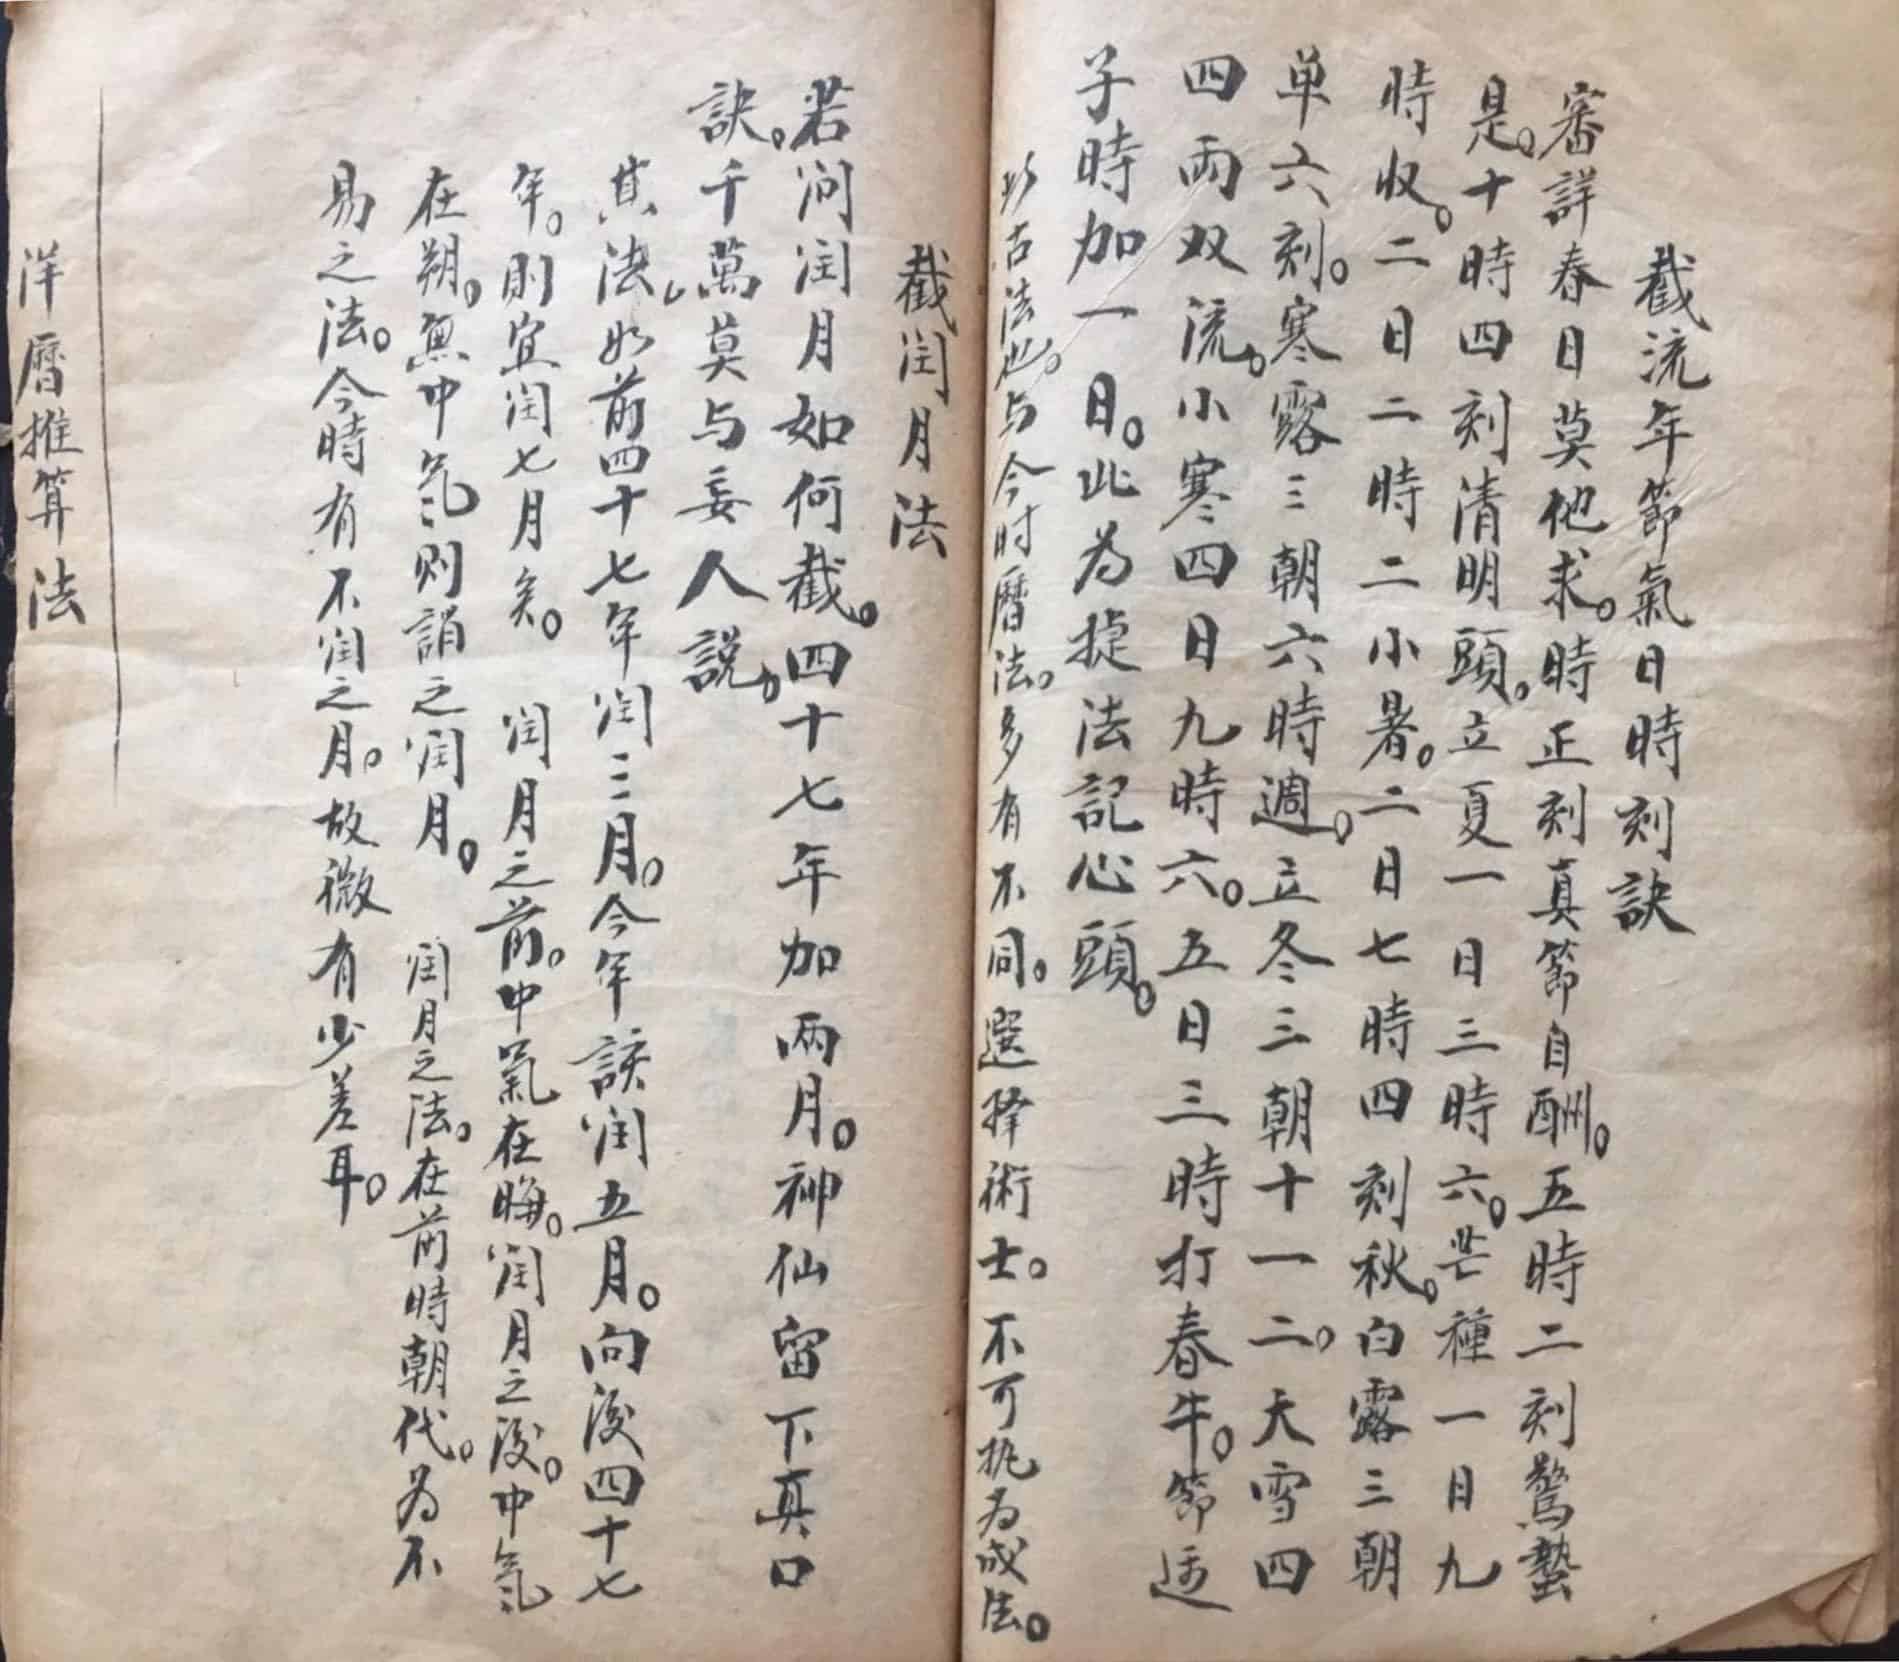 截流年節氣日時刻訣
審詳春日莫他求。時正刻真節自酬。五時二刻驚蟄
是。十時四刻清明頭。立夏一日三時六。芒種一日九
時收。二日二時二小暑。二日七時四刻秋。白露三朝
单六刻。寒露三朝六時週。立冬三朝十一二。大雪四
四两双流。小寒四日九時六。五日三時打春牛。節逢
子時加一日。此为捷法記心頭。
此古法也。与今时曆法。多有不同。選择術士。不可执为成法。
截闰月法
若问闰月如何截。四十七年加两月。神仙留下真口
訣。千萬莫与妄人説。
其法，如前四十七年闰三月。今年該闰五月。向後四十七
年。則宜闰七月矣。 闰月之前。中氣在晦。闰月之後。中氣
在朔。無中氣则謂之闰月。 闰月之法。在前時朝代。为不
易之法。今時有不闰之月。故微有少差耳。
洋曆推算法